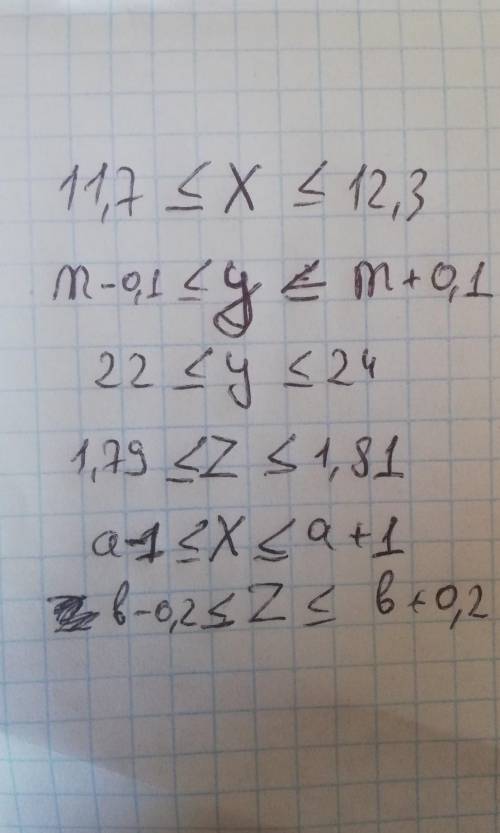 11,7 ≤ X ≤ 12,3
m-0,1 ≤ y ≤ m+0,1
22 ≤ y ≤ 24
1,79 ≤ Z ≤ 1,81
a-1 ≤ X ≤ a+1
в-0,2 ≤ Z ≤ в+0,2